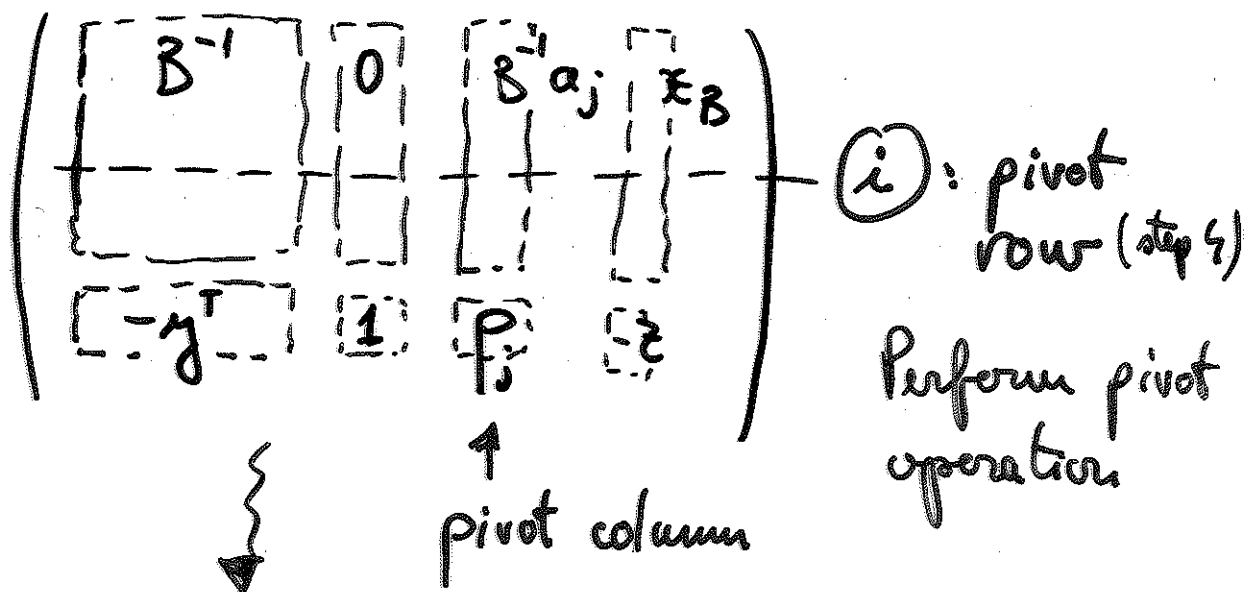 B⁻¹ 0 B⁻¹aⱼ x_B
i : pivot
row (step 4)
-yᵀ 1 pⱼ -z
Perform pivot
operation
pivot column